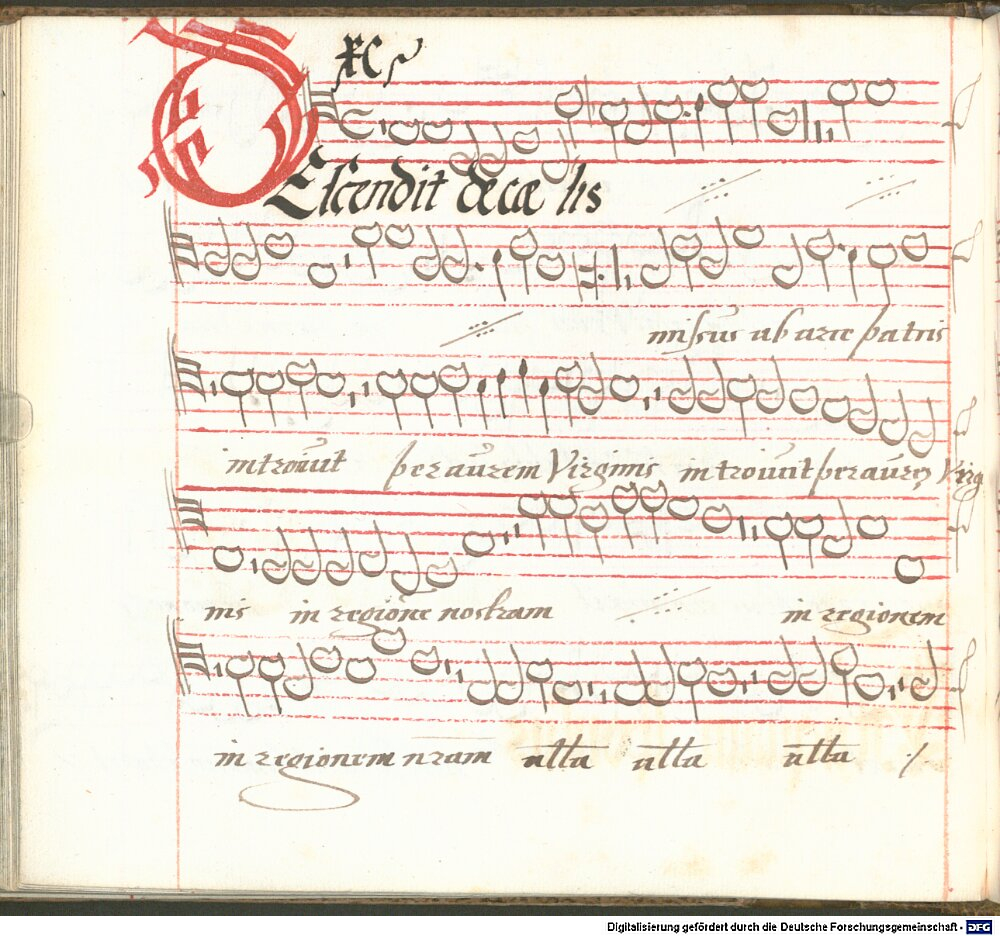 DEscendit de cæ lis
missus ab arce patris
introiuit per aurem Virginis introiuit per aurē Virg
nis in regione nostram in regionem
in regionem nram alla alla alla
Digitalisierung gefördert durch die Deutsche Forschungsgemeinschaft - DFG